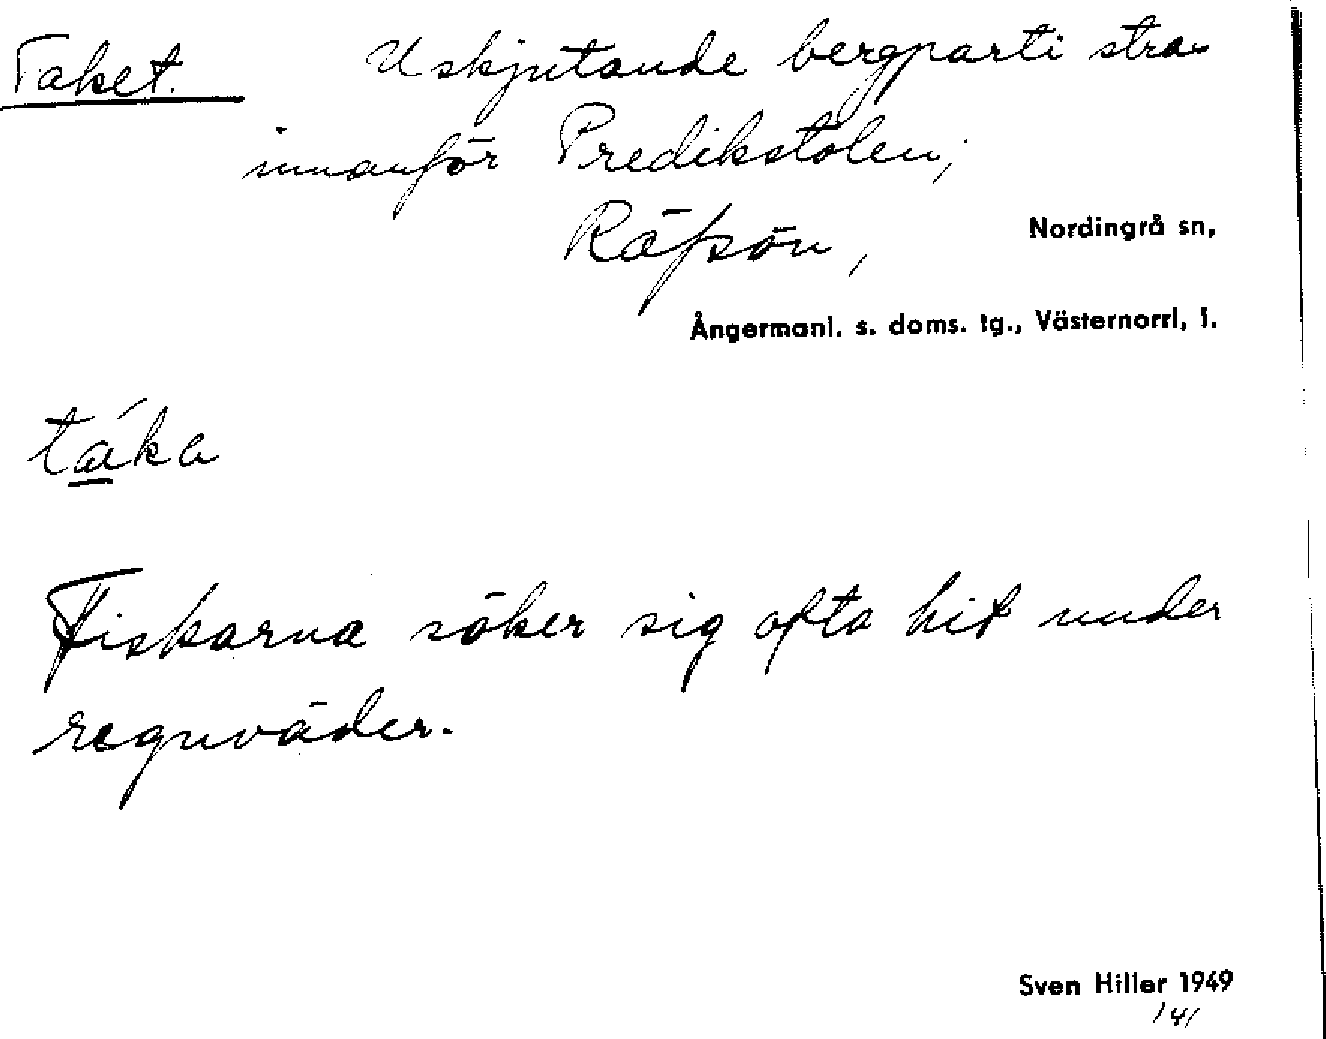 Taket. Uskjutande bergparti strax
innanför Predikstolen;
Räfsön, Nordingrå sn,
Ångermanl. s. doms. tg., Västernorrl, l.
táka
Fiskarna söker sig ofta hit under
regnväder.
Sven Hiller 1949
141